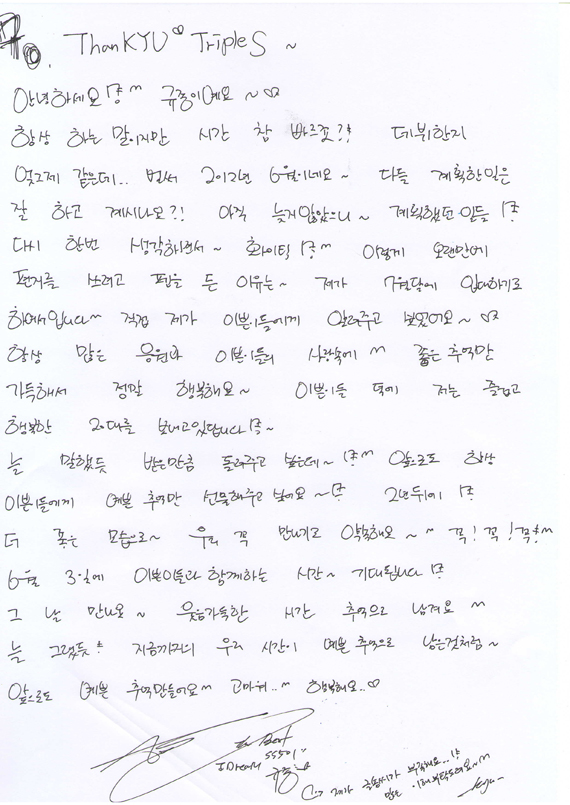 To. ThanKYU♡ TripleS ~
안녕하세요!? ^^ 규종이에요 ~♡
항상 하는 말이지만 시간 참 빠르죠?! 데뷔한지
엊그제 같은데.. 벌써 2012년 6월이네요~ 다들 계획한일은
잘 하고 계시나요?! 아직 늦지않았으니~ 계획했던 일들!?
다시 한번 생각하면서~ 화이팅!? ^^ 이렇게 오랜만에
편지를 쓰려고 펜을 든 이유는~ 제가 7월달에 입대하기로
하여서입니다^^ 직접 제가 이쁜이들에게 알려주고 싶었어요~♡
항상 많은 응원과 이쁜이들의 사랑속에^^ 좋은추억만
가득해서 정말 행복해요~ 이쁜이들 덕에 저는 즐겁고
행복한 20대를 보내고있답니다!?~
늘 말했듯 받은만큼 돌려주고 싶은데~!?^^ 앞으로도 항상
이쁜이들에게 예쁜 추억만 선물해주고 싶어요~!? 2년뒤에!?
더 좋은 모습으로~ 우리 꼭 만나기로 약속해요~^^ 꼭!꼭!꼭!^^
6월 3일에 이쁜이들과 함께하는 시간~ 기대됩니다!?
그 날 만나요~ 웃음가득한 시간 추억으로 남겨요^^
늘 그랬듯! 지금까지의 우리 시간이 예쁜추억으로 남은것처럼~
앞으로도 예쁜 추억만들어요^^ 고마워..^^ 행복해요..♡
The Best
SS501
I Dream 규종
제가 국왕시가 부락해요..!?
많은 이해부탁드려요~^^
kyu-